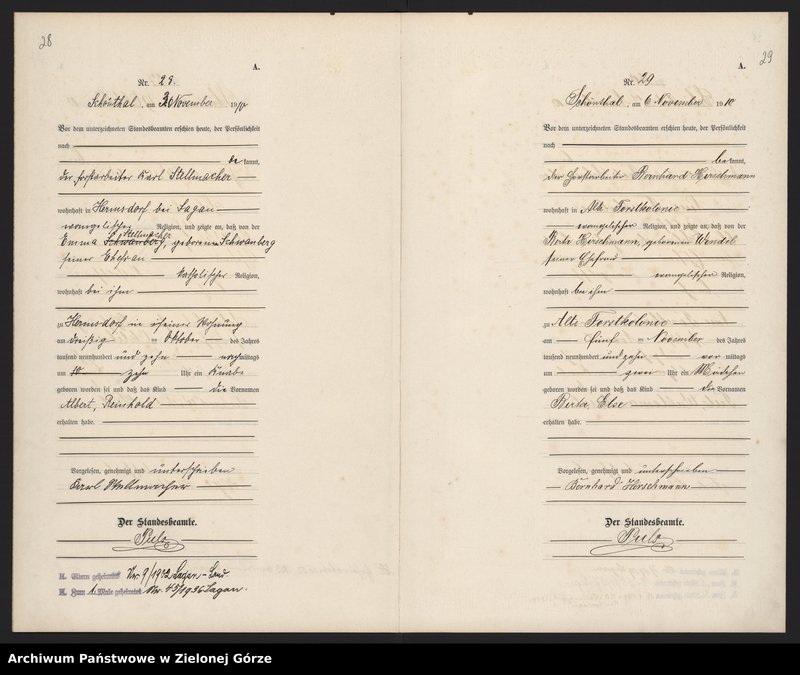 28
A.
Nr. 28.
Schönthal, am 31 November 1910
Vor dem unterzeichneten Standesbeamten erschien heute, der Persönlichkeit
nach
be kannt,
der Forstarbeiter Karl Stellmacher
wohnhaft in Hermsdorf bei Sagan
evangelischer Religion, und zeigte an, daß von der
Stellmacher
Emma Schwanberg, geborene Schwanberg
seiner Ehefrau
katholischer Religion,
wohnhaft bei ihm
zu Hermsdorf in seiner Wohnung
am dreißig ten Oktober des Jahres
tausend neunhundert und zehn nachmittags
um 10 zehn Uhr ein Knabe
geboren worden sei und daß das Kind die Vornamen
Albert, Reinhold
erhalten habe.
Vorgelesen, genehmigt und unterschrieben
Karl Stellmacher
Der Standesbeamte.
H. Eltern geheiratet Nr. 9/1912 Sagan-Land.
H. Zum 1. Male geheiratet Nr. 45/1936 Sagan.
29
A.
Nr. 29
Schönthal, am 6 November 1910
Vor dem unterzeichneten Standesbeamten erschien heute, der Persönlichkeit
nach
be kannt,
der Forstarbeiter Bernhard Hirschmann
wohnhaft in Alte Forstkolonie
evangelischer Religion, und zeigte an, daß von der
Berta Hirschmann, geborenen Wendel
seiner Ehefrau
evangelischer Religion,
wohnhaft bei ihm
zu Alte Forstkolonie
am fünf ten November des Jahres
tausend neunhundert und zehn vor mittags
um Uhr ein Mädchen
geboren worden sei und daß das Kind die Vornamen
Berta Else
erhalten habe.
Vorgelesen, genehmigt und unterschrieben
Bernhard Hirschmann
Der Standesbeamte.
Archiwum Państwowe w Zielonej Górze